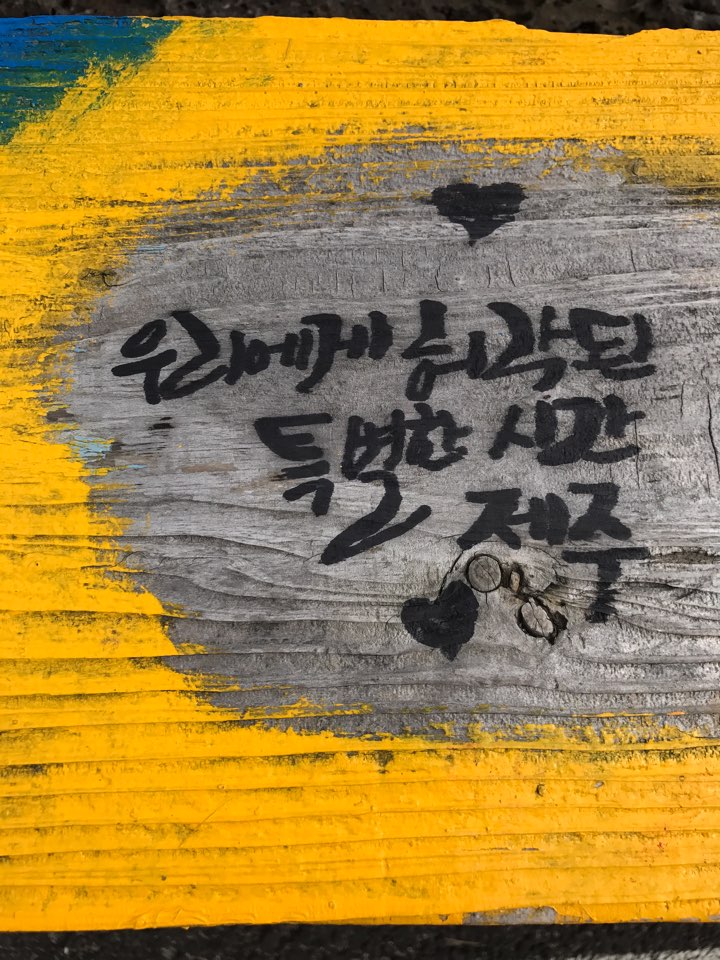 우리에게 허락된
특별한 시간
제주